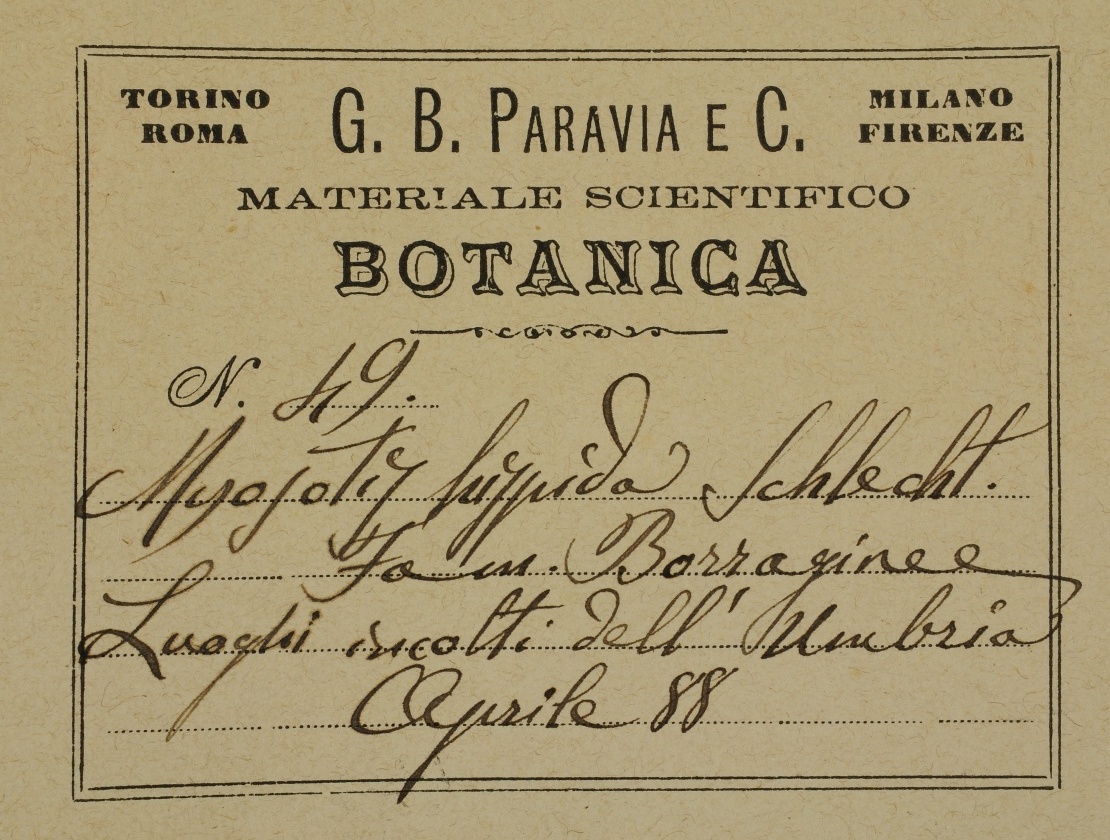 TORINO G. B. PARAVIA E C. MILANO
ROMA FIRENZE
MATERIALE SCIENTIFICO
BOTANICA
N. 49.
Myosotis hispida Schlecht.
Fam. Borraginee
Luoghi incolti dell' Umbria
Aprile 88